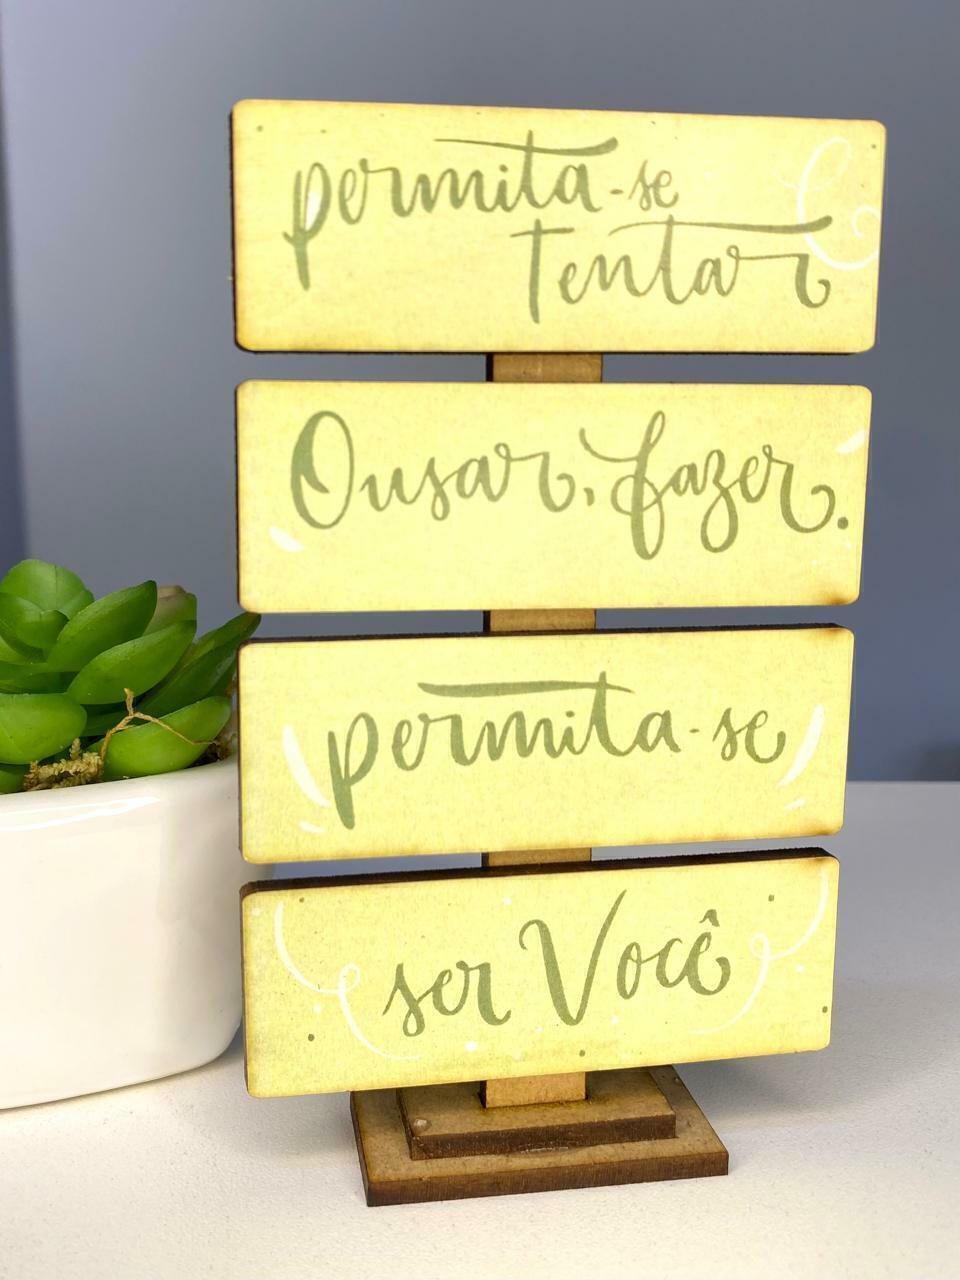 permita-se
Tentar
Ousar, fazer.
permita-se
ser Você